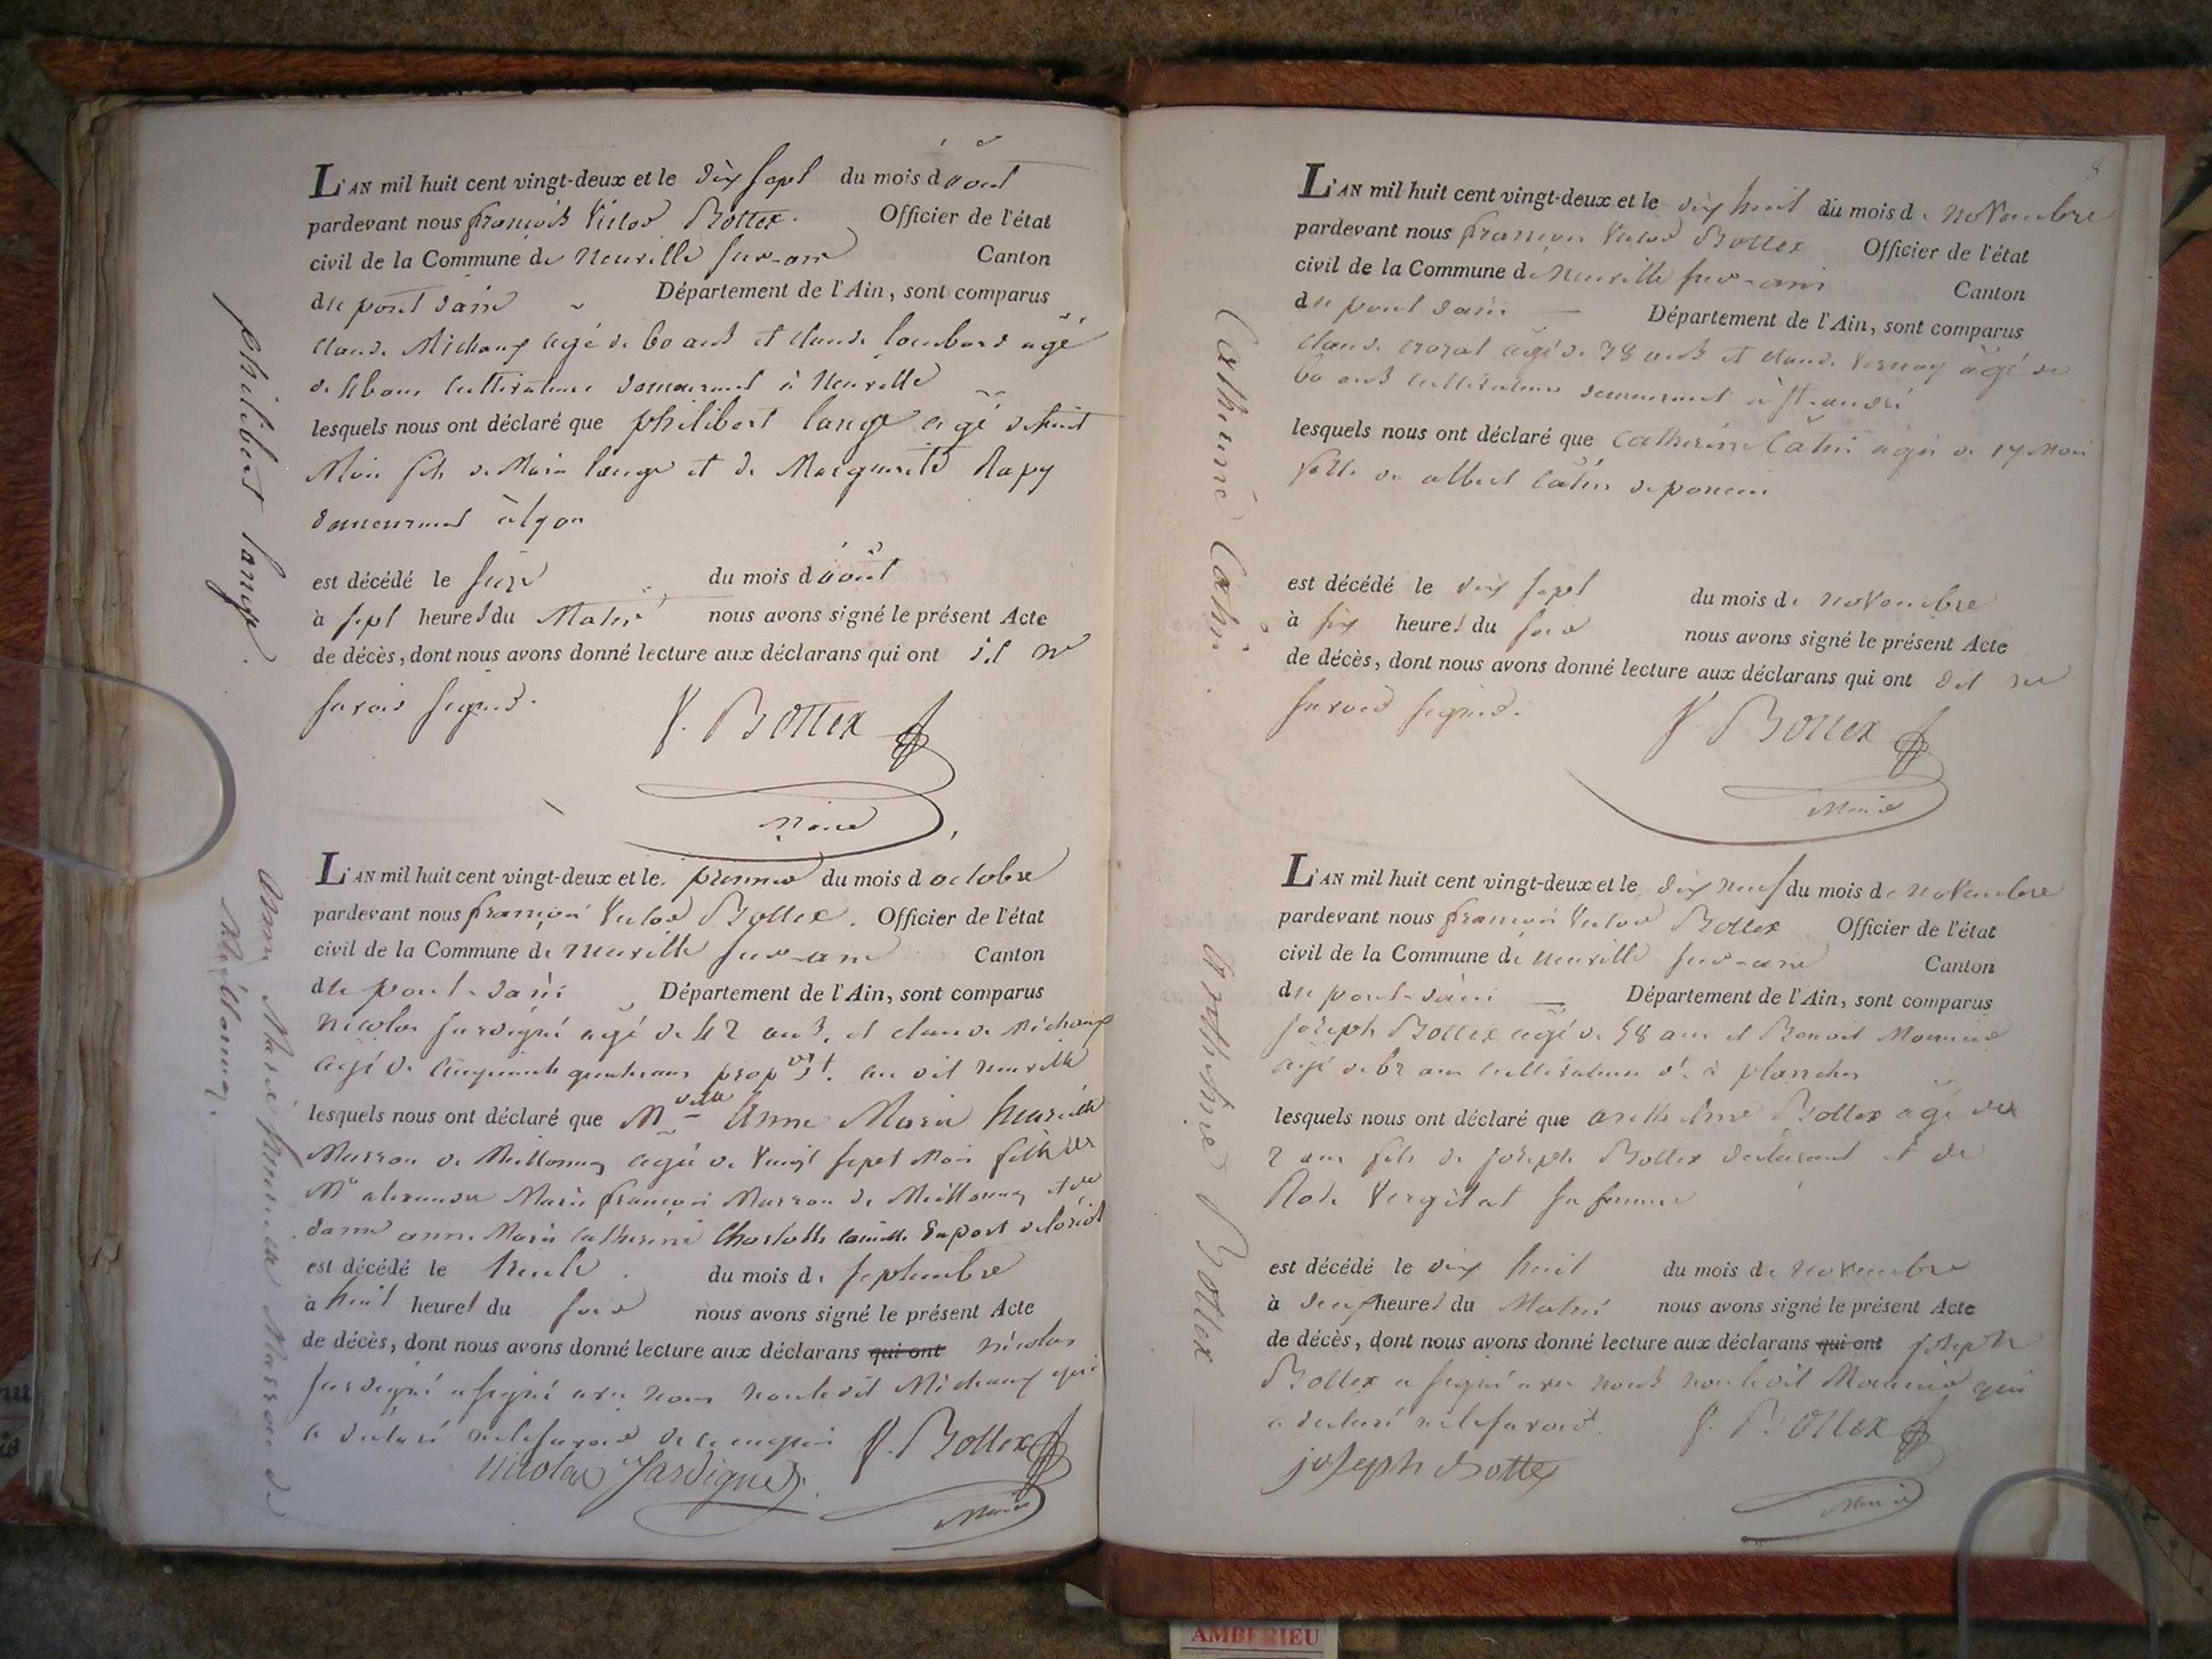 L'AN mil huit cent vingt-deux et le dix sept du mois d'aout
pardevant nous françois Victor Bottex. Officier de l'état
civil de la Commune de Neuville sur-ain Canton
du pont dain Département de l'Ain, sont comparus
Claude Michaux agé de 60 ans et Claude lombard agé
de ans cultivateurs demeurant à Neuville
lesquels nous ont déclaré que philibert lange agé de huit
Mois fils de Marie lange et de Marguerite Rapy
demeurant à lyon
est décédé le seize du mois d'aout
à sept heures du Matin nous avons signé le présent Acte
de décès, dont nous avons donné lecture aux déclarans qui ont dit ne
savoir signer.
V. Bottex
Maire
philibert lange.
L'AN mil huit cent vingt-deux et le premier du mois d octobre
pardevant nous françois Victor Bottex. Officier de l'état
civil de la Commune de Neuville sur-ain Canton
du pont-dain Département de l'Ain, sont comparus
nicolas jardigné agé de 42 ans, et claude Michaux
agé de cinquante quatre ans prop.re d.t au dit neuville
lesquels nous ont déclaré que M.elle Anne Marie henriette
Marron de Meillonnas agée de Vingt sept Mois fille de
M.r alexandre Marie françois Marron de Meillonnas et de
dame anne Marie catherine Charlotte camille Duport de loriol
est décédé le trente du mois de septembre
à huit heures du soir nous avons signé le présent Acte
de décès, dont nous avons donné lecture aux déclarans qui ont nicolas
jardigné a signé avec nous non le dit Michaux qui
a déclaré ne le savoir de ce enquis V. Bottex
nicolas Jardigné
Maire
anne Marie henriette Marron de
Meillonnas.
L'AN mil huit cent vingt-deux et le dix huit du mois de novembre
pardevant nous françois Victor Bottex Officier de l'état
civil de la Commune de Neuville sur-ain Canton
du pont dain Département de l'Ain, sont comparus
Claude crozat agé de 38 ans et claude Vernay agé de
60 ans cultivateurs demeurant à St. andré
lesquels nous ont déclaré que catherine Catin agée de 17 Mois
fille de albert Catin de poncin
est décédé le dix sept du mois de novembre
à six heures du soir nous avons signé le présent Acte
de décès, dont nous avons donné lecture aux déclarans qui ont dit ne
savoir signer.
V. Bottex
Maire
Catherine Catin.
L'AN mil huit cent vingt-deux et le dix neuf du mois de novembre
pardevant nous françois Victor Bottex Officier de l'état
civil de la Commune de Neuville sur-ain Canton
du pont-dain Département de l'Ain, sont comparus
joseph Bottex agé de 58 ans et Benoit Monnier
agé de 62 ans cultivateurs d.t à planches
lesquels nous ont déclaré que Bottex agé de
2 ans fils de joseph Bottex déclarant et de
Rose Vergitat sa femme
est décédé le dix huit du mois de novembre
à heures du Matin nous avons signé le présent Acte
de décès, dont nous avons donné lecture aux déclarans qui ont joseph
Bottex a signé avec nous non le dit Monnier qui
a déclaré ne le savoir. V. Bottex
joseph Bottex
Maire
Bottex
AMBERIEU